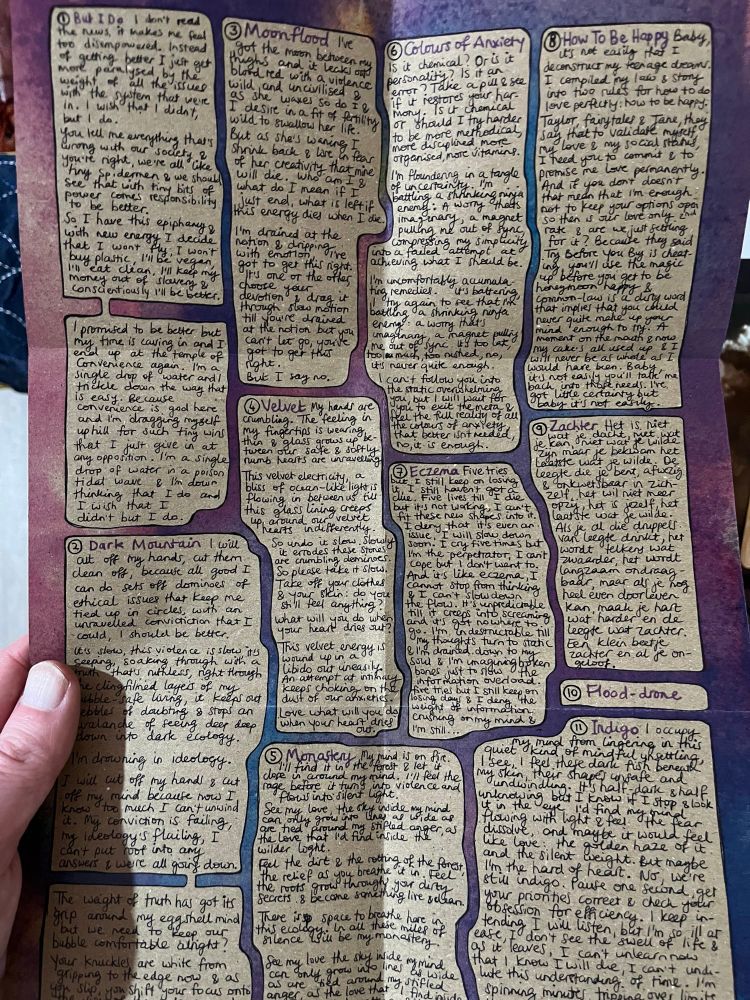 ① But I Do I don't read
the news, it makes me feel
too disempowered. Instead
of getting better I just get
more paralysed by the
weight of all the issues
with the system that we're
in. I wish that I didn't,
but I do.
You tell me everything that's
wrong with our society &
you're right, we're all like
tiny Spidermen & we should
see that with tiny bits of
power comes responsibility
to be better.
So I have this epiphany &
with new energy I decide
that I won't fly, I won't
buy plastic, I'll be vegan,
I'll eat clean, I'll keep my
money out of slavery &
conscientiously I'll be better.
I promised to be better but
my time is caving in and I
end up at the temple of
Convenience again. I'm a
single drop of water and I
trickle down the way that
is easy. Because
convenience is good here
and I'm dragging myself
uphill for such tiny wins
that I just give in at
any opposition. I'm a single
drop of water in a poison
tidal wave & I'm down
thinking that I do and
I wish that I
didn't but I do.
② Dark Mountain I will
cut off my hands, cut them
clean off, because all good I
can do sets off dominoes of
ethical issues that keep me
tied up in circles, with an
unravelled conviction that I
could, I should be better.
It's slow, this violence is slow it's
seeping, soaking through with a
truth that's ruthless, right through
the clingfilmed layers of my
bubble-safe living, it keeps out
pebbles of doubting & stops an
avalanche of seeing deep deep
down into dark ecology.
I'm drowning in ideology.
I will cut off my hands & cut
off my mind because now I
know too much I can't unwind
it. My conviction is failing,
my ideology's flailing, I
can't put roof into any
answers & we're all going down.
The weight of truth has got its
grip around my eggshell mind
but we need to keep our
bubble comfortable alright?
Your knuckles are white from
gripping to the edge now & as
you slip, you shift your focus onto
③ Moonflood I've
got the moon between my
thighs and it leaks out
blood red with a violence
wild and uncivilised &
as she waxes so do I &
I desire in a fit of fertility
wild to swallow her life.
But as she's waning, I
shrink back & live in fear
of her creativity that mine
will die, who am I &
what do I mean if I
just end, what is left if
this energy dies when I die.
I'm drained at the
notion & dripping
with emotion, I've
got to get this right,
it's one or the other
choose your
devotion & drag it
through slow motion
till you're drained
at the notion but you
can't let go, you've
got to get this
right.
But I say no.
④ Velvet My hands are
crumbling. The feeling in
my fingertips is wearing
thin & glass grows up be-
tween our safe & softly
numb hearts are unravelling.
This velvet electricity, a
bliss of ocean-like light is
flowing in between us till
this glass lining creeps
up around our velvet
hearts indifferently.
So undo it slow, slowly
it errodes these stones
are crumbling dominoes.
So please take it slow.
Take off your clothes
& your skin: do you
still feel anything?
what will you do when
your heart dries out?
This velvet energy is
wound up in a
libido out uneasily.
An attempt at intimacy
keeps choking on the
dust of our anxieties.
Love what will you do
when your heart dries
out.
⑤ Monastery My mind is on fire.
I'll find it in the forest & let it
close in around my mind. I'll feel the
rage before it turns into violence and
flows into silent light.
See my love, the sky inside my mind
can only grow into lines as wide as
are tied around my stifled anger, as
the love that I'd find inside the
wilder light.
Feel the dirt & the rotting of the forest,
the relief as you breathe it in. Feel
the roots grow through your dirty
secrets & become something live & clean.
There is space to breathe here in
this ecology. In all these miles of
silence will be my monastery.
See my love the sky inside my mind
can only grow into lines as wide
as are tied around my stifled
anger, as the love that I'd find inside
⑥ Colours of Anxiety
Is it chemical? Or is it
personality? Is it an
error? Take a pill & see
if it restores your har-
mony. Is it chemical
or should I try harder
to be more methodical,
more disciplined more
organised, more vitamins.
I'm floundering in a tangle
of uncertainty. I'm
battling a shrinking ninja
enemy. A worry that's
imaginary, a magnet
pulling me out of sync,
compressing my simplicity
into a failed attempt at
achieving what I should be.
I'm uncomfortably accumula-
ting remedies. it's battering
I try again to see that I'm
battling a shrinking ninja
enemy: a worry that's
imaginary, a magnet pulling
me out of sync, it's too late,
too much, too rushed, no,
it's never quite enough.
I can't follow you into
the static overwhelming
you, but I will wait for
you to exit the meta &
feel the full reality of all
the colours of anxiety,
that better isn't needed,
no, it is enough.
⑦ Eczema Five tries
but I still keep on losing
it, I still haven't got a
clue. Five lives till I die
but it's not working, I can't
fit these new shapes into it
I deny that it's even an
issue, I will slow down
soon. I cry five times but
I'm the perpetrator, I can't
cope but I don't want to.
And it's like eczema, I
cannot stop from thinking
& I can't slow down
the flow. It's unpredictable
till it creeps into screaming
and it's got nowhere to
go. I'm indestructable till
my thoughts turn to static
& I'm drained down to my
soul & I'm imagining broken
bones just to slow the
information overload.
five tries but I still keep on
losing days & I deny, the
weight of information
crushing on my mind &
I'm still...
⑧ How To Be Happy Baby,
it's not easily that I
deconstruct my teenage dreams.
I compiled my law & story
into two rules for how to do
love perfectly: how to be happy.
Taylor, fairytales & Jane, they
say that to validate myself,
my love & my social status,
I need you to commit & to
promise me love permanently.
And if you don't doesn't
that mean that I'm enough
not to keep your options open
so then is our love only 2nd
rate & are we just settling
for it? Because they said
Try Before you Buy is cheat-
ing, you'll use the magic
up before you get to be
honeymoon happy &
common-law is a dirty word
that implies that you could
never quite make up your
mind enough to try. A
moment on the mouth & now
my cake's all used up & I
will never be as whole as I
would have been. Baby
it's not easily you'll talk me
back, into those needs. I've
got little certainty but
baby it's not easily.
⑨ Zachter Het is niet
wat je dacht, niet wat
je kan, niet wat je wilde
zijn maar je bekwam het
laatste wat je wilde. De
leegte die je bent, afwezig
& onkwetsbaar in zich-
zelf, het wil niet meer
opzij, het is jezelf, het
laatste wat je wilde.
Als je al die druppels
van leegte drinkt, het
wordt telkens wat
zwaarder, het wordt
langzaam ondraag-
baar maar als je nog
heel even doorleven
kan, maak je hart
wat harder en de
leegte wat zachter.
Een klein beetje
zachter en al je on-
geloof.
⑩ Flood-drone
⑪ Indigo I occupy
my mind from lingering in this
quiet kind of mindful unsettling
I see. I feel these dark fish beneath
my skin, their shapes unsafe and
undwindling. It's half-dark & half
unknowing but I know if I stop & look
it in the eye I'd find my mind
flowing with light & feel the fear
dissolve, and maybe it would feel
like love: the golden haze of it
and the silent weight. But maybe
I'm the hard of heart. No, we're
still indigo. Pause one second, get
your priorities correct & check your
obsession for efficiency. I keep in-
tending, I will listen, but I'm so ill at
ease I don't see the swell of life &
as it leaves, I can't unlearn now
that I know I will die, I can't undi-
lute this understanding of time. I'm
spinning minutes